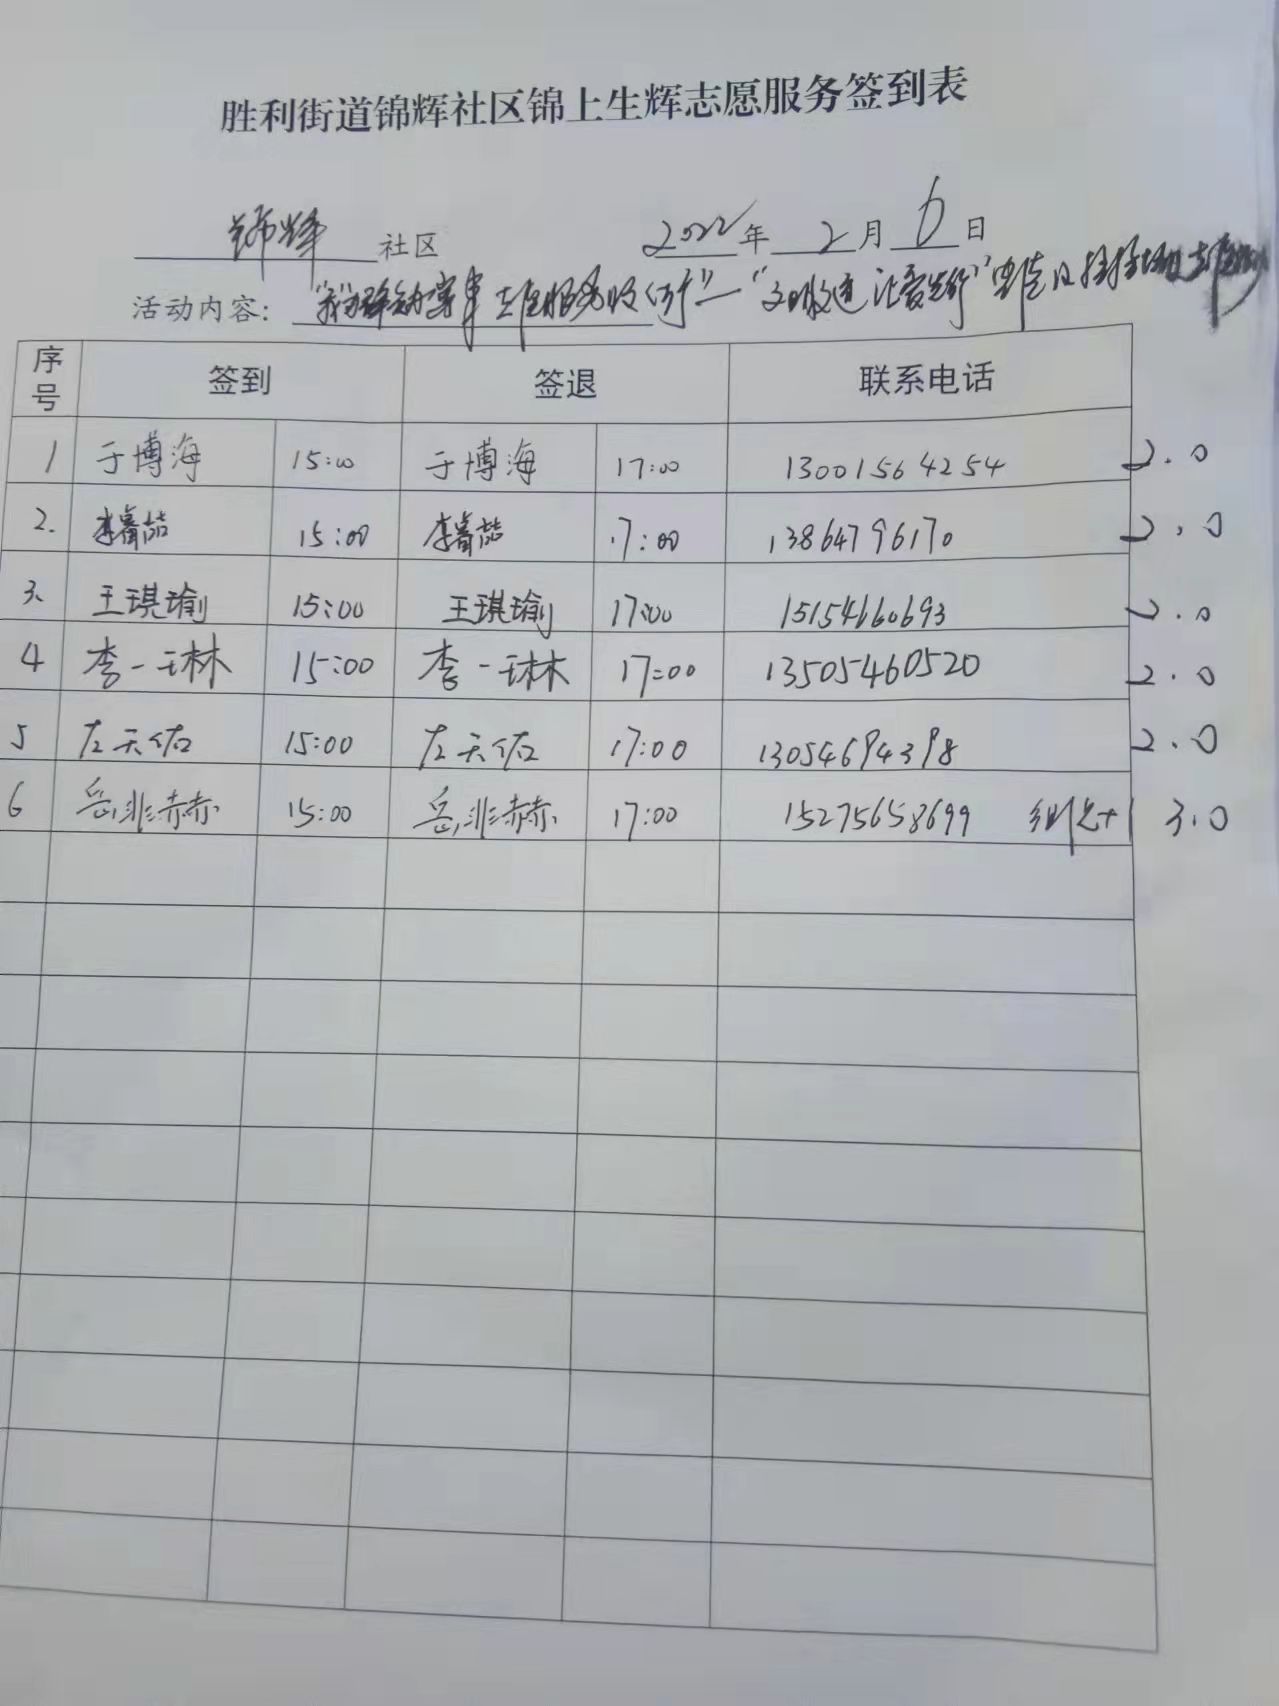 胜利街道锦辉社区锦上生辉志愿服务签到表
锦辉 社区 2022年 2月 6日
活动内容： "我为群众办实事 志愿服务我们行"—"文明交通 让爱先行"
序号 签到 签退 联系电话
1 于博海 15:00 于博海 17:00 13001564254 2.0
2. 李睿喆 15:00 李睿喆 17:00 13864796170 2.0
3. 王琪瑜 15:00 王琪瑜 17:00 15154660693 2.0
4 李一琳 15:00 李一琳 17:00 13505460520 2.0
5 左天佑 15:00 左天佑 17:00 13054694398 2.0
6 岳非赫 15:00 岳非赫 17:00 15275658699 +1 3.0